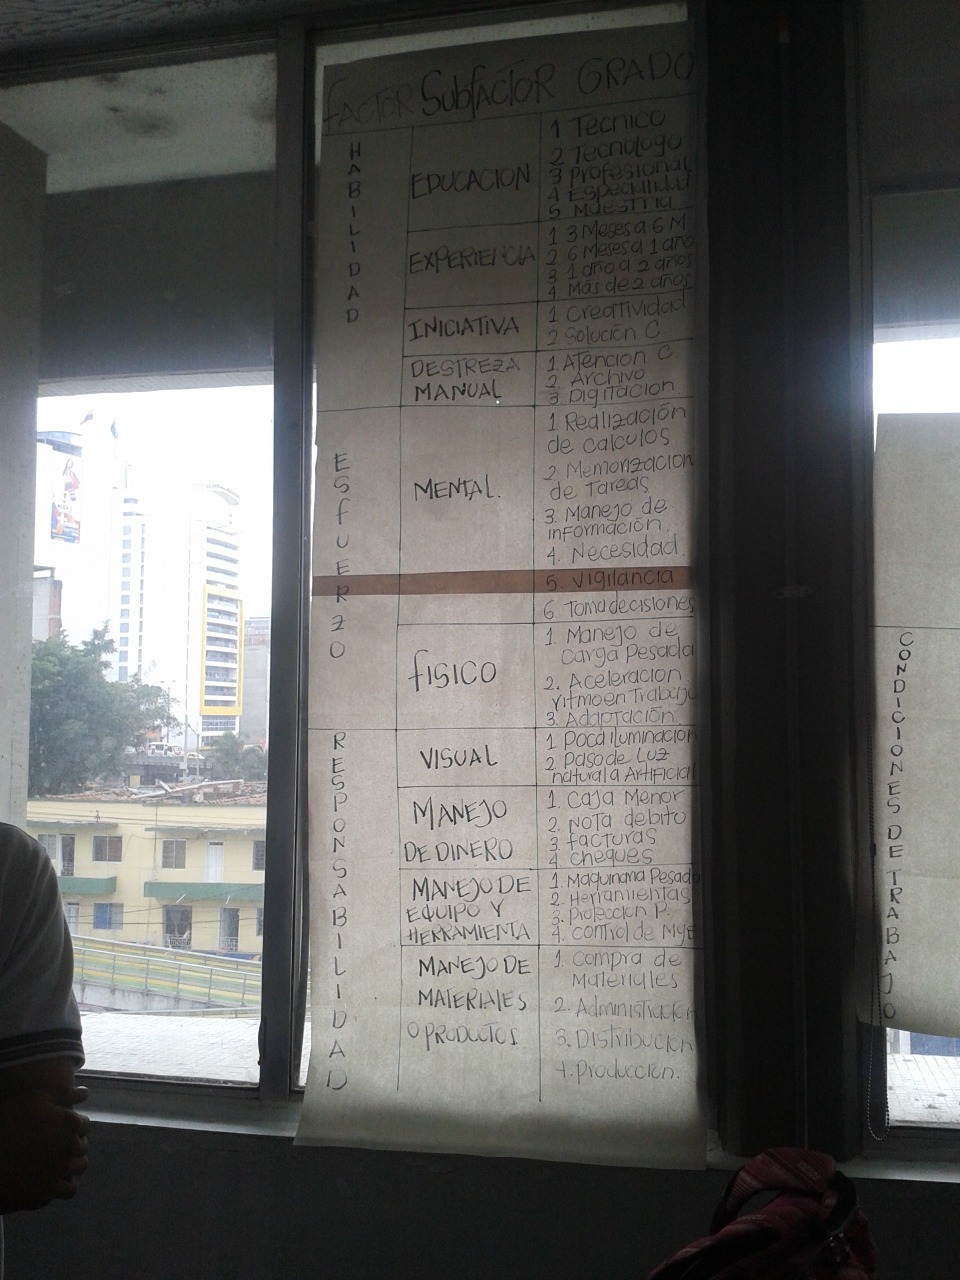 FACTOR SUBFACTOR GRADO
HABILIDAD
EDUCACION
1 Tecnico
2 Tecnologo
3 Profesional
4 Especialidad
5 Maestria
EXPERIENCIA
1 3 Meses a 6 M
2 6 Meses a 1 año
3 1 año a 2 años
4 Más de 2 años
INICIATIVA
1 Creatividad
2 Solución C.
DESTREZA
MANUAL
1 Atencion C.
2. Archivo
3. Digitacion
ESFUERZO
MENTAL.
1 Realización
de calculos
2. Memorizacion
de Tareas
3. Manejo de
información.
4. Necesidad.
5. Vigilancia
6. Toma decisiones
FISICO
1. Manejo de
Carga Pesada
2. Aceleracion
ritmo en Trabajo
3. Adaptación.
RESPONSABILIDAD
VISUAL
1 Poca iluminacion
2. Paso de Luz
natural a Artificial
MANEJO
DE DINERO
1. Caja Menor
2. Nota debito
3 facturas
4 cheques
MANEJO DE
EQUIPO Y
HERRAMIENTA
1. Maquinaria Pesada
2. Herramientas
3. Proteccion P.
4. control de MyE
MANEJO DE
MATERIALES
O PRODUCTOS
1. Compra de
Materiales
2. Administracion
3. Distribucion
4. Produccion.
CONDICIONES DE TRABAJO